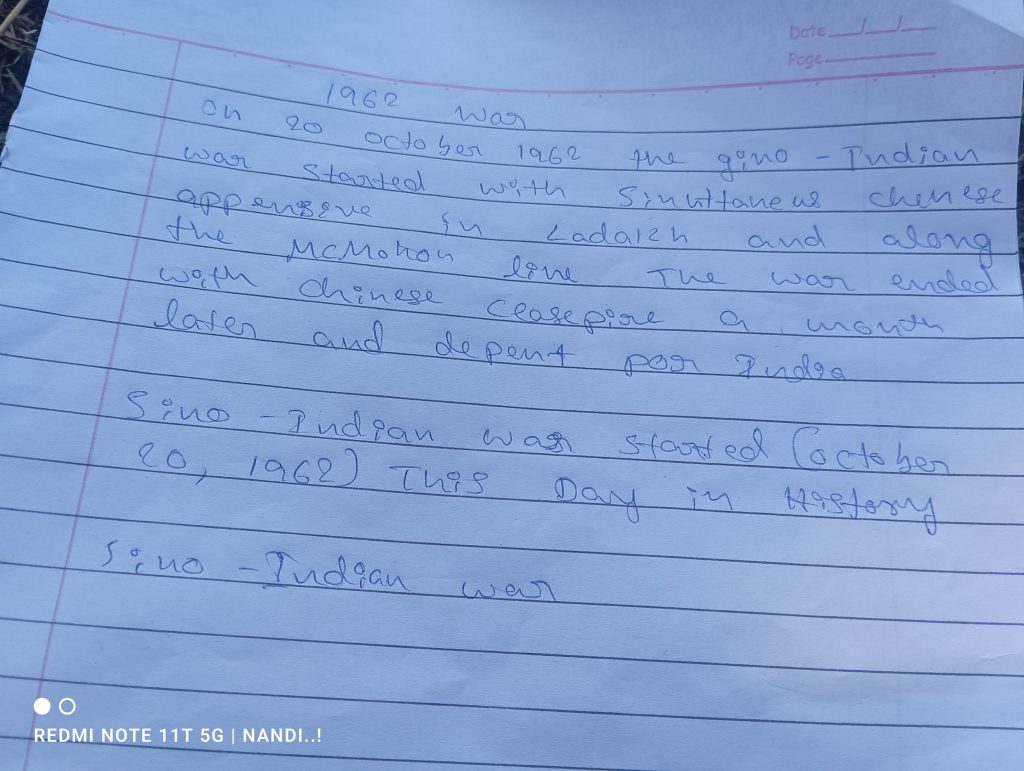 Date / /
Page
1962 war
on 20 october 1962 the gino - Indian
war started with Sinuttaneus chenese
appensive in Ladaizh and along
the McMohon line The war ended
with chinese ceasepire a month
later and depent por India
Sino - Indian war started (october
20, 1962) This Day in History
Sino - Indian war
REDMI NOTE 11T 5G | NANDI..!